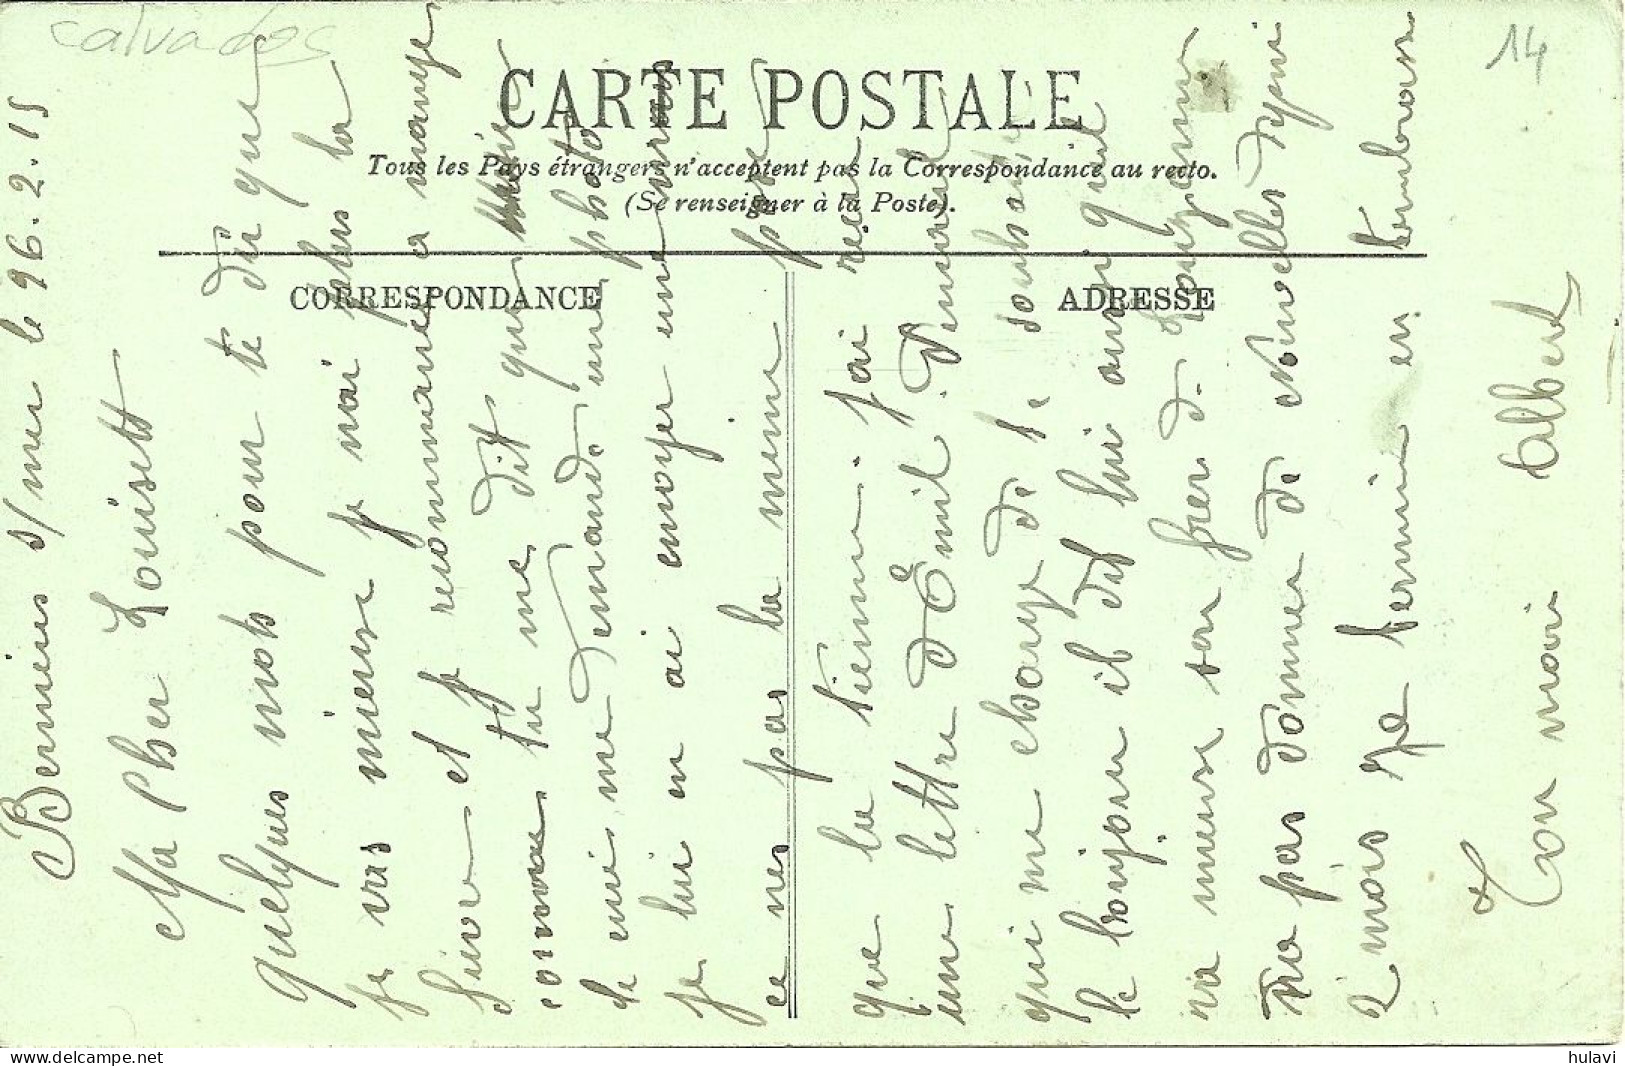 calvados
14
CARTE POSTALE
Tous les Pays étrangers n'acceptent pas la Correspondance au recto.
(Se renseigner à la Poste).
CORRESPONDANCE
ADRESSE
Bernières s/mer le 26.2.15
Ma Cher Louisett
quelques mots pour te dir que
je vais mieux je nai plus la
fievre et je recommance a mange
tu me dit que
de mui me demande une photo
je lui en ai envoyer une mais
ce nes pas la meme pose
que la tienne. J'ai recu
une lettre d'Émil.
qui me charge de te souhaité
le bonjour il dit lui aussi que
sa meuse son frer de
pas donner de nouvelles depui
2 mois Je termine en tembrasan
Ton moin Albert
hulavi